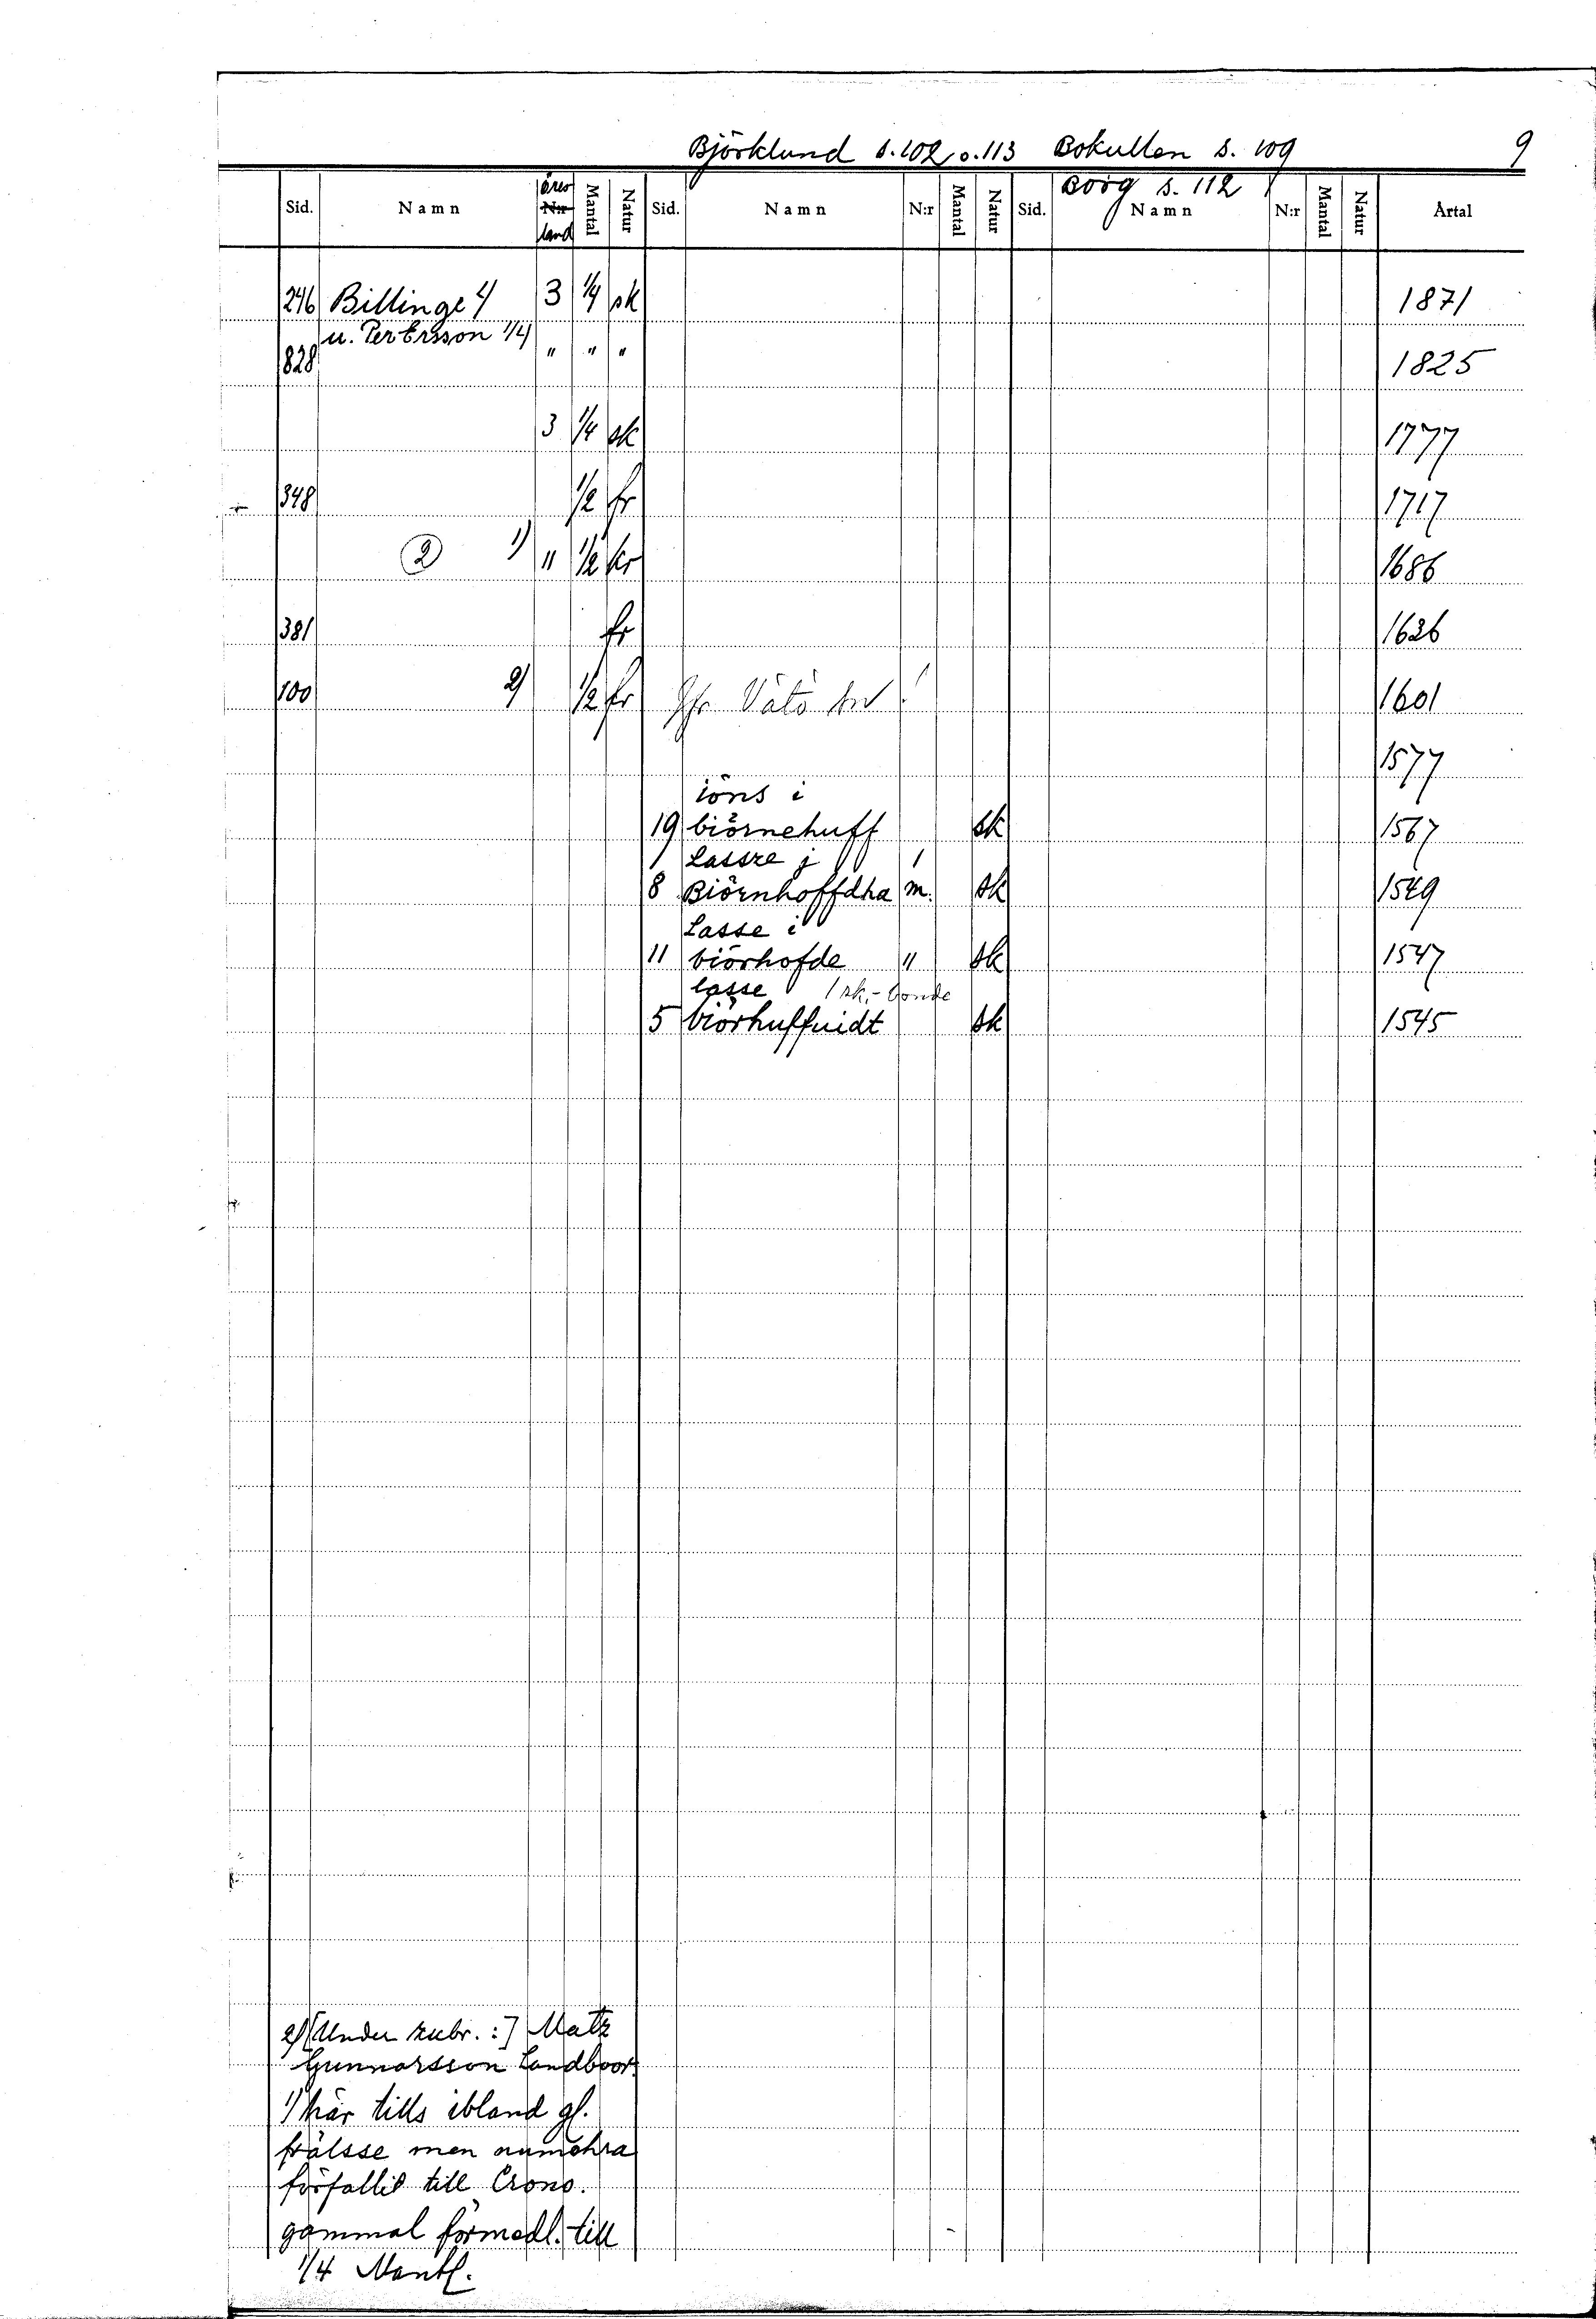 Björklund s. 102 o. 113 Bokullen s. 109 9
Borg s. 112
Sid. Namn öres N:r land Mantal Natur Sid. Namn N:r Mantal Natur Sid. Namn N:r Mantal Natur Årtal
246 Billinge 4 3 1/4 sk 1871
u. Per Ersson 1/4
828 " " " 1825
3 1/4 sk 1777
348 1/2 fr 1717
2 1) " 1/2 kr 1686
381 fr 1626
100 2) 1/2 fr Jfr Vätö sn! 1601
1577
iöns i
19 biörnehuff sk 1567
Lassze j 1
8 Biörnhoffdha m. sk 1549
Lasse i
11 biörhofde " sk 1547
lasse 1 sk.-bonde
5 biörhuffuidt sk 1545
2) [Under rubr. :] Matz
Gunnarsson Landboor.
1) här tills ibland gl.
frälsse men numehra
förfallit till Crono.
gammal förmedl. till
1/4 Mantl.